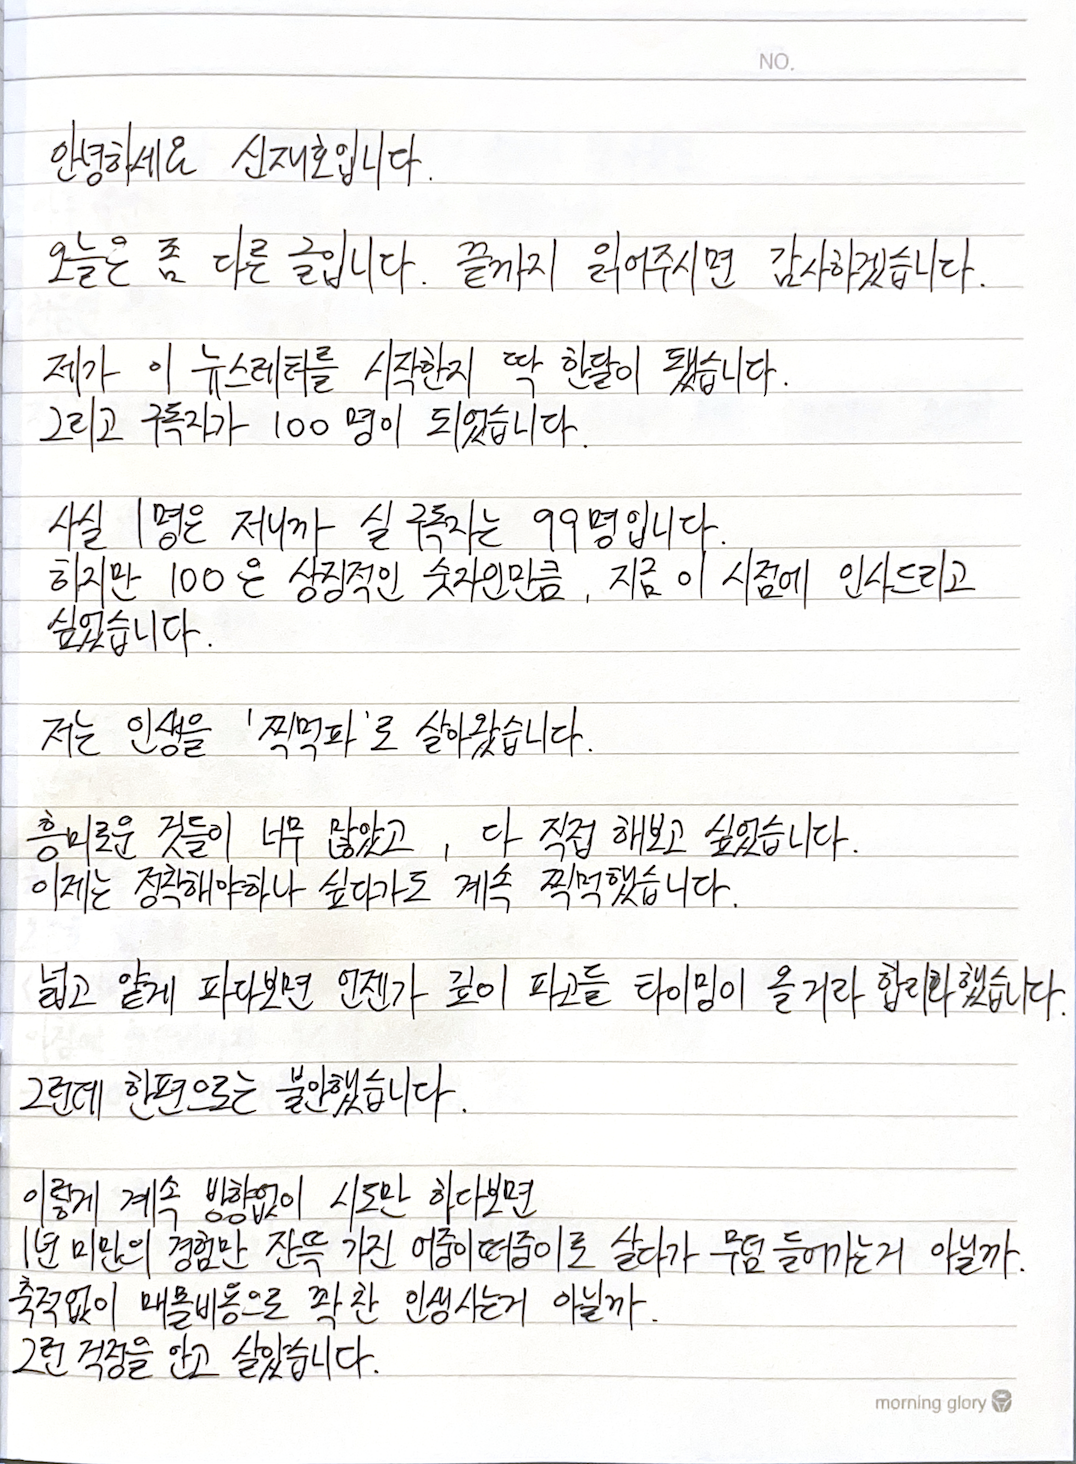 NO.
안녕하세요 신재호입니다.
오늘은 좀 다른 글입니다. 끝까지 읽어주시면 감사하겠습니다.
제가 이 뉴스레터를 시작한지 딱 한달이 됐습니다.
그리고 구독자가 100명이 되었습니다.
사실 1명은 저니까 실 구독자는 99명입니다.
하지만 100은 상징적인 숫자인만큼, 지금 이 시점에 인사드리고
싶었습니다.
저는 인생을 '찍먹파'로 살아왔습니다.
흥미로운 것들이 너무 많았고, 다 직접 해보고 싶었습니다.
이제는 정착해야하나 싶다가도 계속 찍먹했습니다.
넓고 얕게 파다보면 언젠가 깊이 파고들 타이밍이 올거라 합리화했습니다.
그런데 한편으로는 불안했습니다.
이렇게 계속 방향없이 시도만 하다보면
1년 미만의 경험만 잔뜩 가진 어중이떠중이로 살다가 무덤 들어가는거 아닐까.
축적없이 매몰비용으로 꽉 찬 인생사는거 아닐까.
그런 걱정을 안고 살았습니다.
morning glory